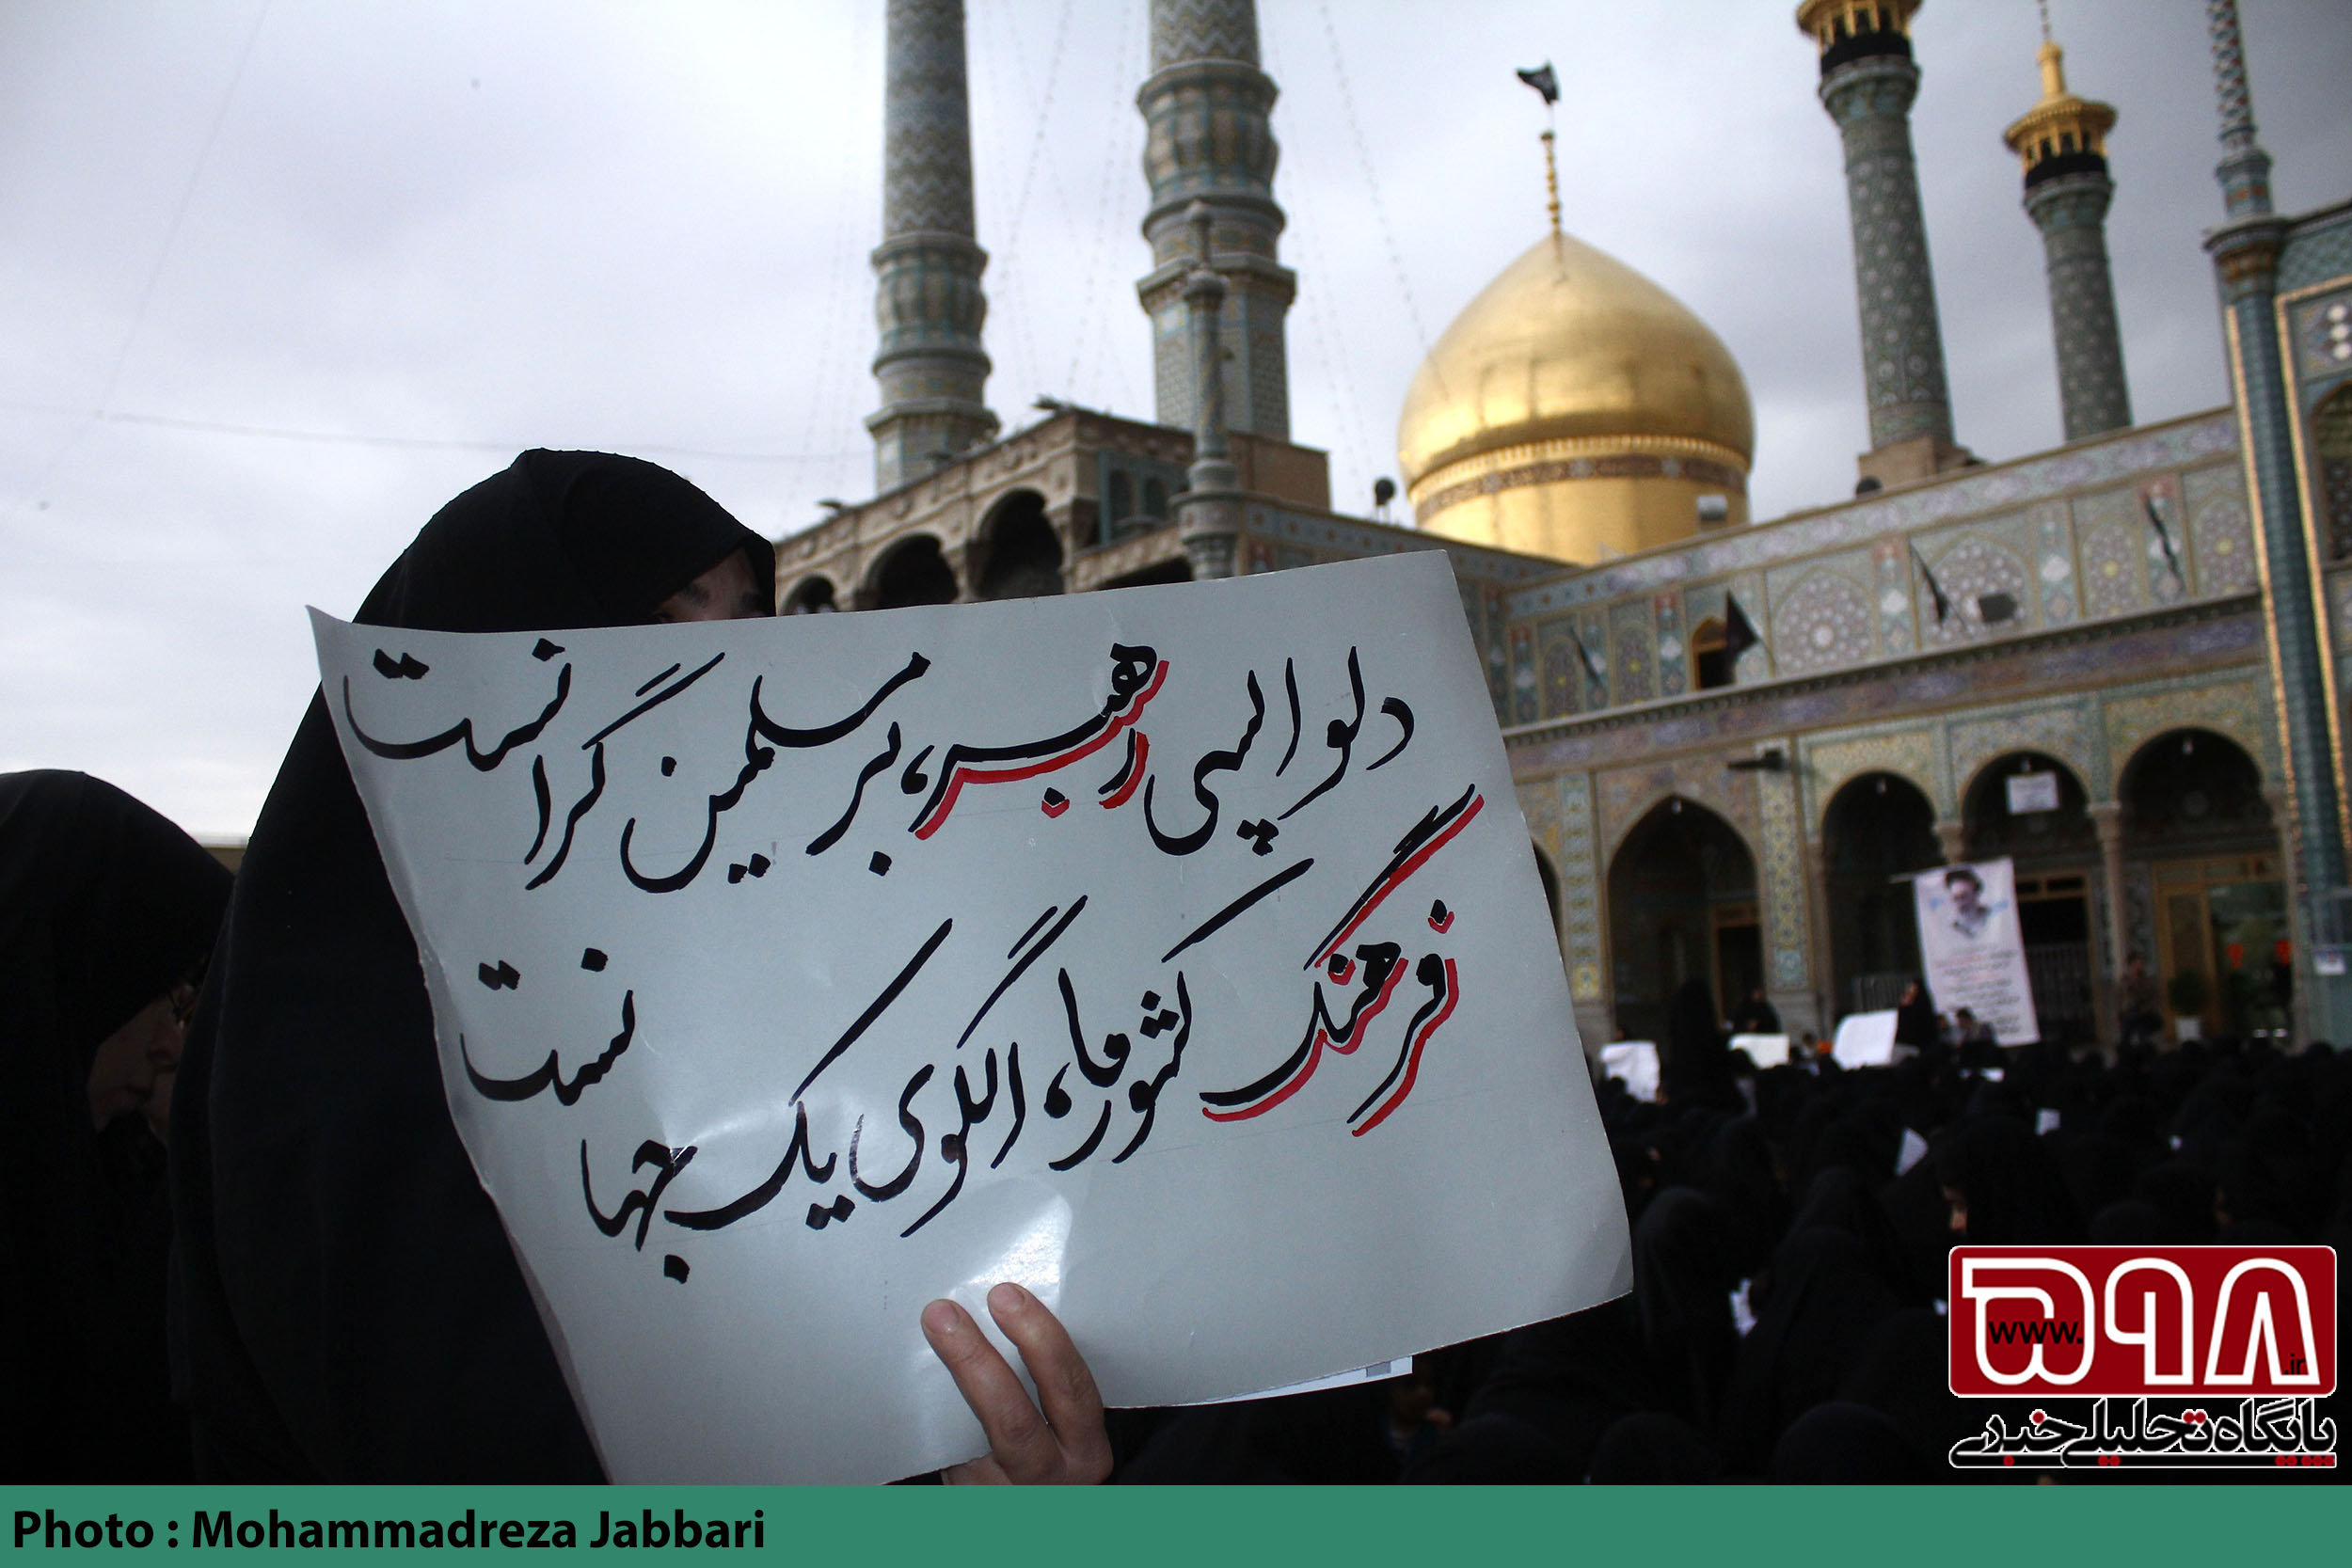 دلواپسی رهبر، بر مسلمین گرانست
فرهنگ کشور ما، الگوی یک جهانست
۵۹۸
www. .ir
پایگاه تحلیلی خبری
Photo : Mohammadreza Jabbari